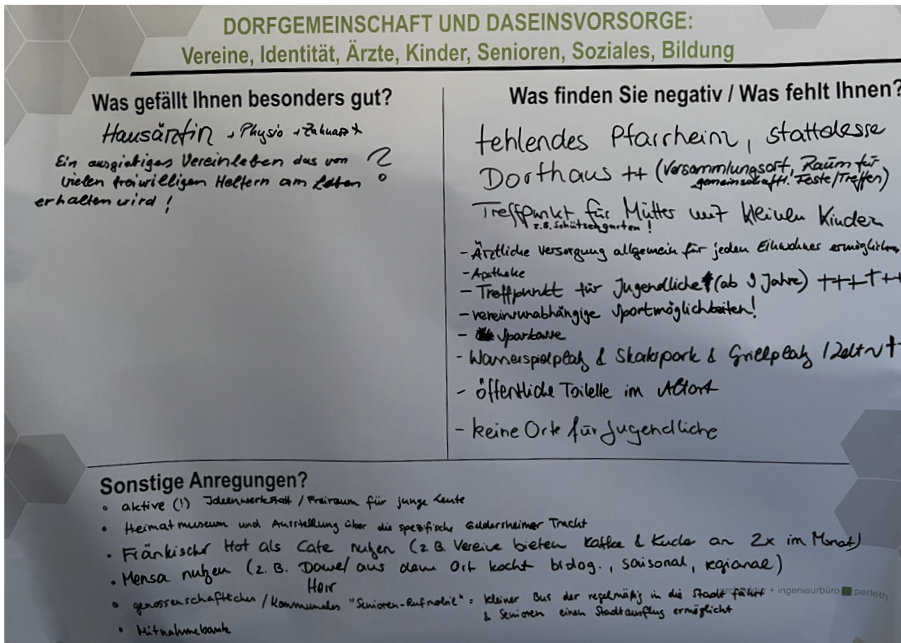 DORFGEMEINSCHAFT UND DASEINSVORSORGE:
Vereine, Identität, Ärzte, Kinder, Senioren, Soziales, Bildung
Was gefällt Ihnen besonders gut?
Hausärztin + Physio + Zahnarzt
Ein ausgiebiges Vereinleben das von
vielen freiwilligen Helfern am Leben
erhalten wird!
Was finden Sie negativ / Was fehlt Ihnen?
fehlendes Pfarrheim, stattdesse
Dorfhaus ++ (Versammlungsort, Raum für
gemeinschaftl. Feste/Treffen)
Treffpunkt für Mütter mit kleinen Kinder
z.B. Schützengarten!
- Ärztliche Versorgung allgemein für jeden Einwohner ermögliche
- Apotheke
- Treffpunkt für Jugendliche (ab 9 Jahre) +++++
- vereinsunabhängige Sportmöglichkeiten!
- Sparkasse
- Wasserspielplatz & Skatepark & Grillplatz
- öffentliche Toilette im Altort
- keine Orte für Jugendliche
Sonstige Anregungen?
• aktive (!) Ideenwerkstatt / Freiraum für junge Leute
• Heimatmuseum und Ausstellung über die spezifische Tracht
• Fränkischer Hof als Cafe nutzen (z.B. Vereine bieten Kaffee & Kuche an 2x im Monat)
• Mensa nutzen (z.B. Dame/ aus dem Ort kocht biolog., saisonal, regional)
Herr
• genossenschaftliches / Kommunales "Senioren-Rufmobil" = kleiner Bus der regelmäßig in die Stadt fährt
& Senioren einen Stadtausflug ermöglicht
• Mitnahmebank
+ ingenieurbüro perleth